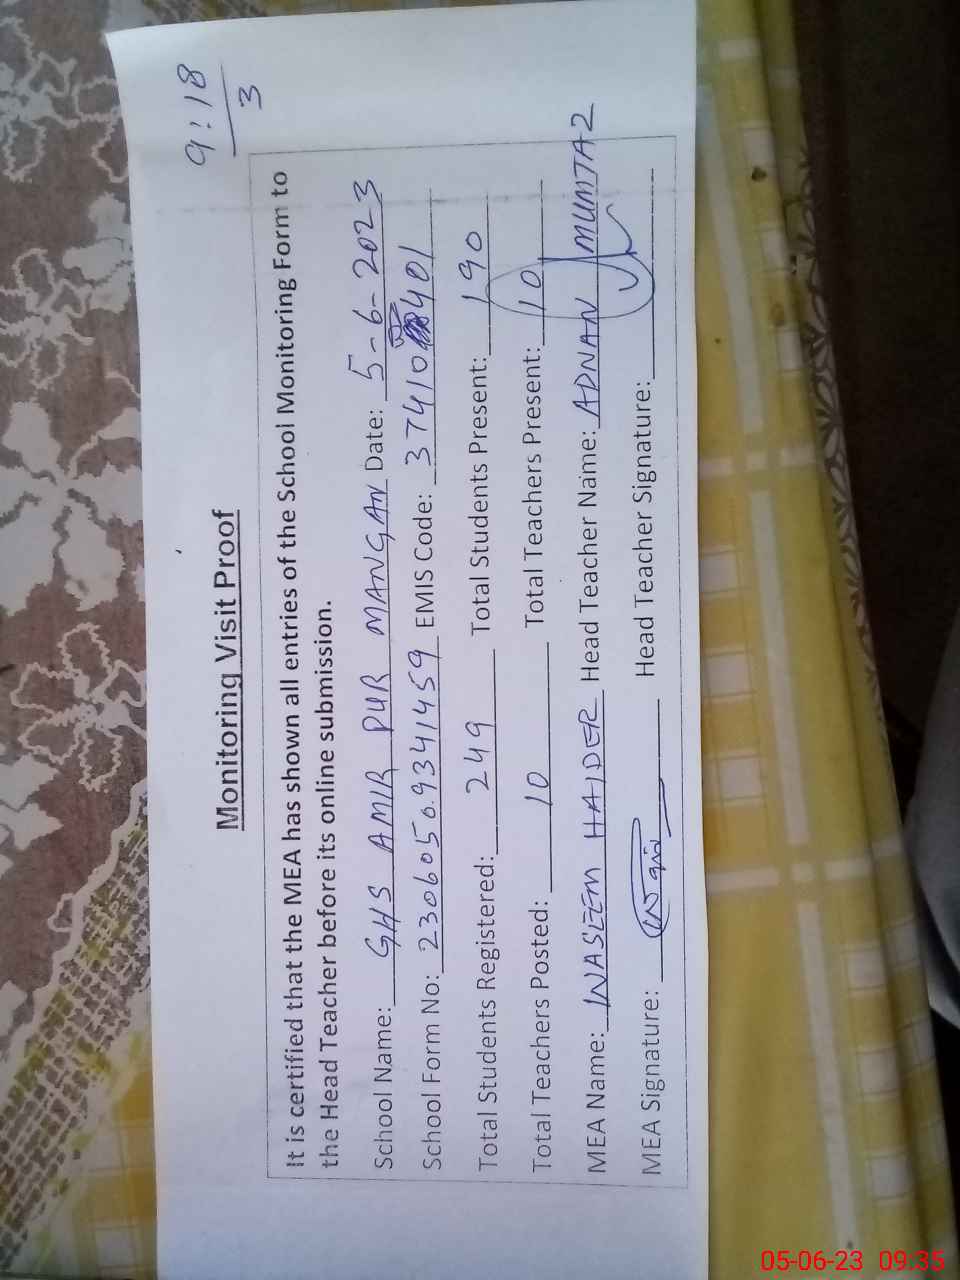 9:18
3
Monitoring Visit Proof
It is certified that the MEA has shown all entries of the School Monitoring Form to
the Head Teacher before its online submission.
School Name: GHS AMIR PUR MANGAN Date: 5-6-2023
School Form No: 23060509341459 EMIS Code: 37410401
Total Students Registered: 249 Total Students Present: 190
Total Teachers Posted: 10 Total Teachers Present: 10
MEA Name: WASEEM HAIDER Head Teacher Name: ADNAN MUMTAZ
MEA Signature: Head Teacher Signature:
05-06-23 09:35